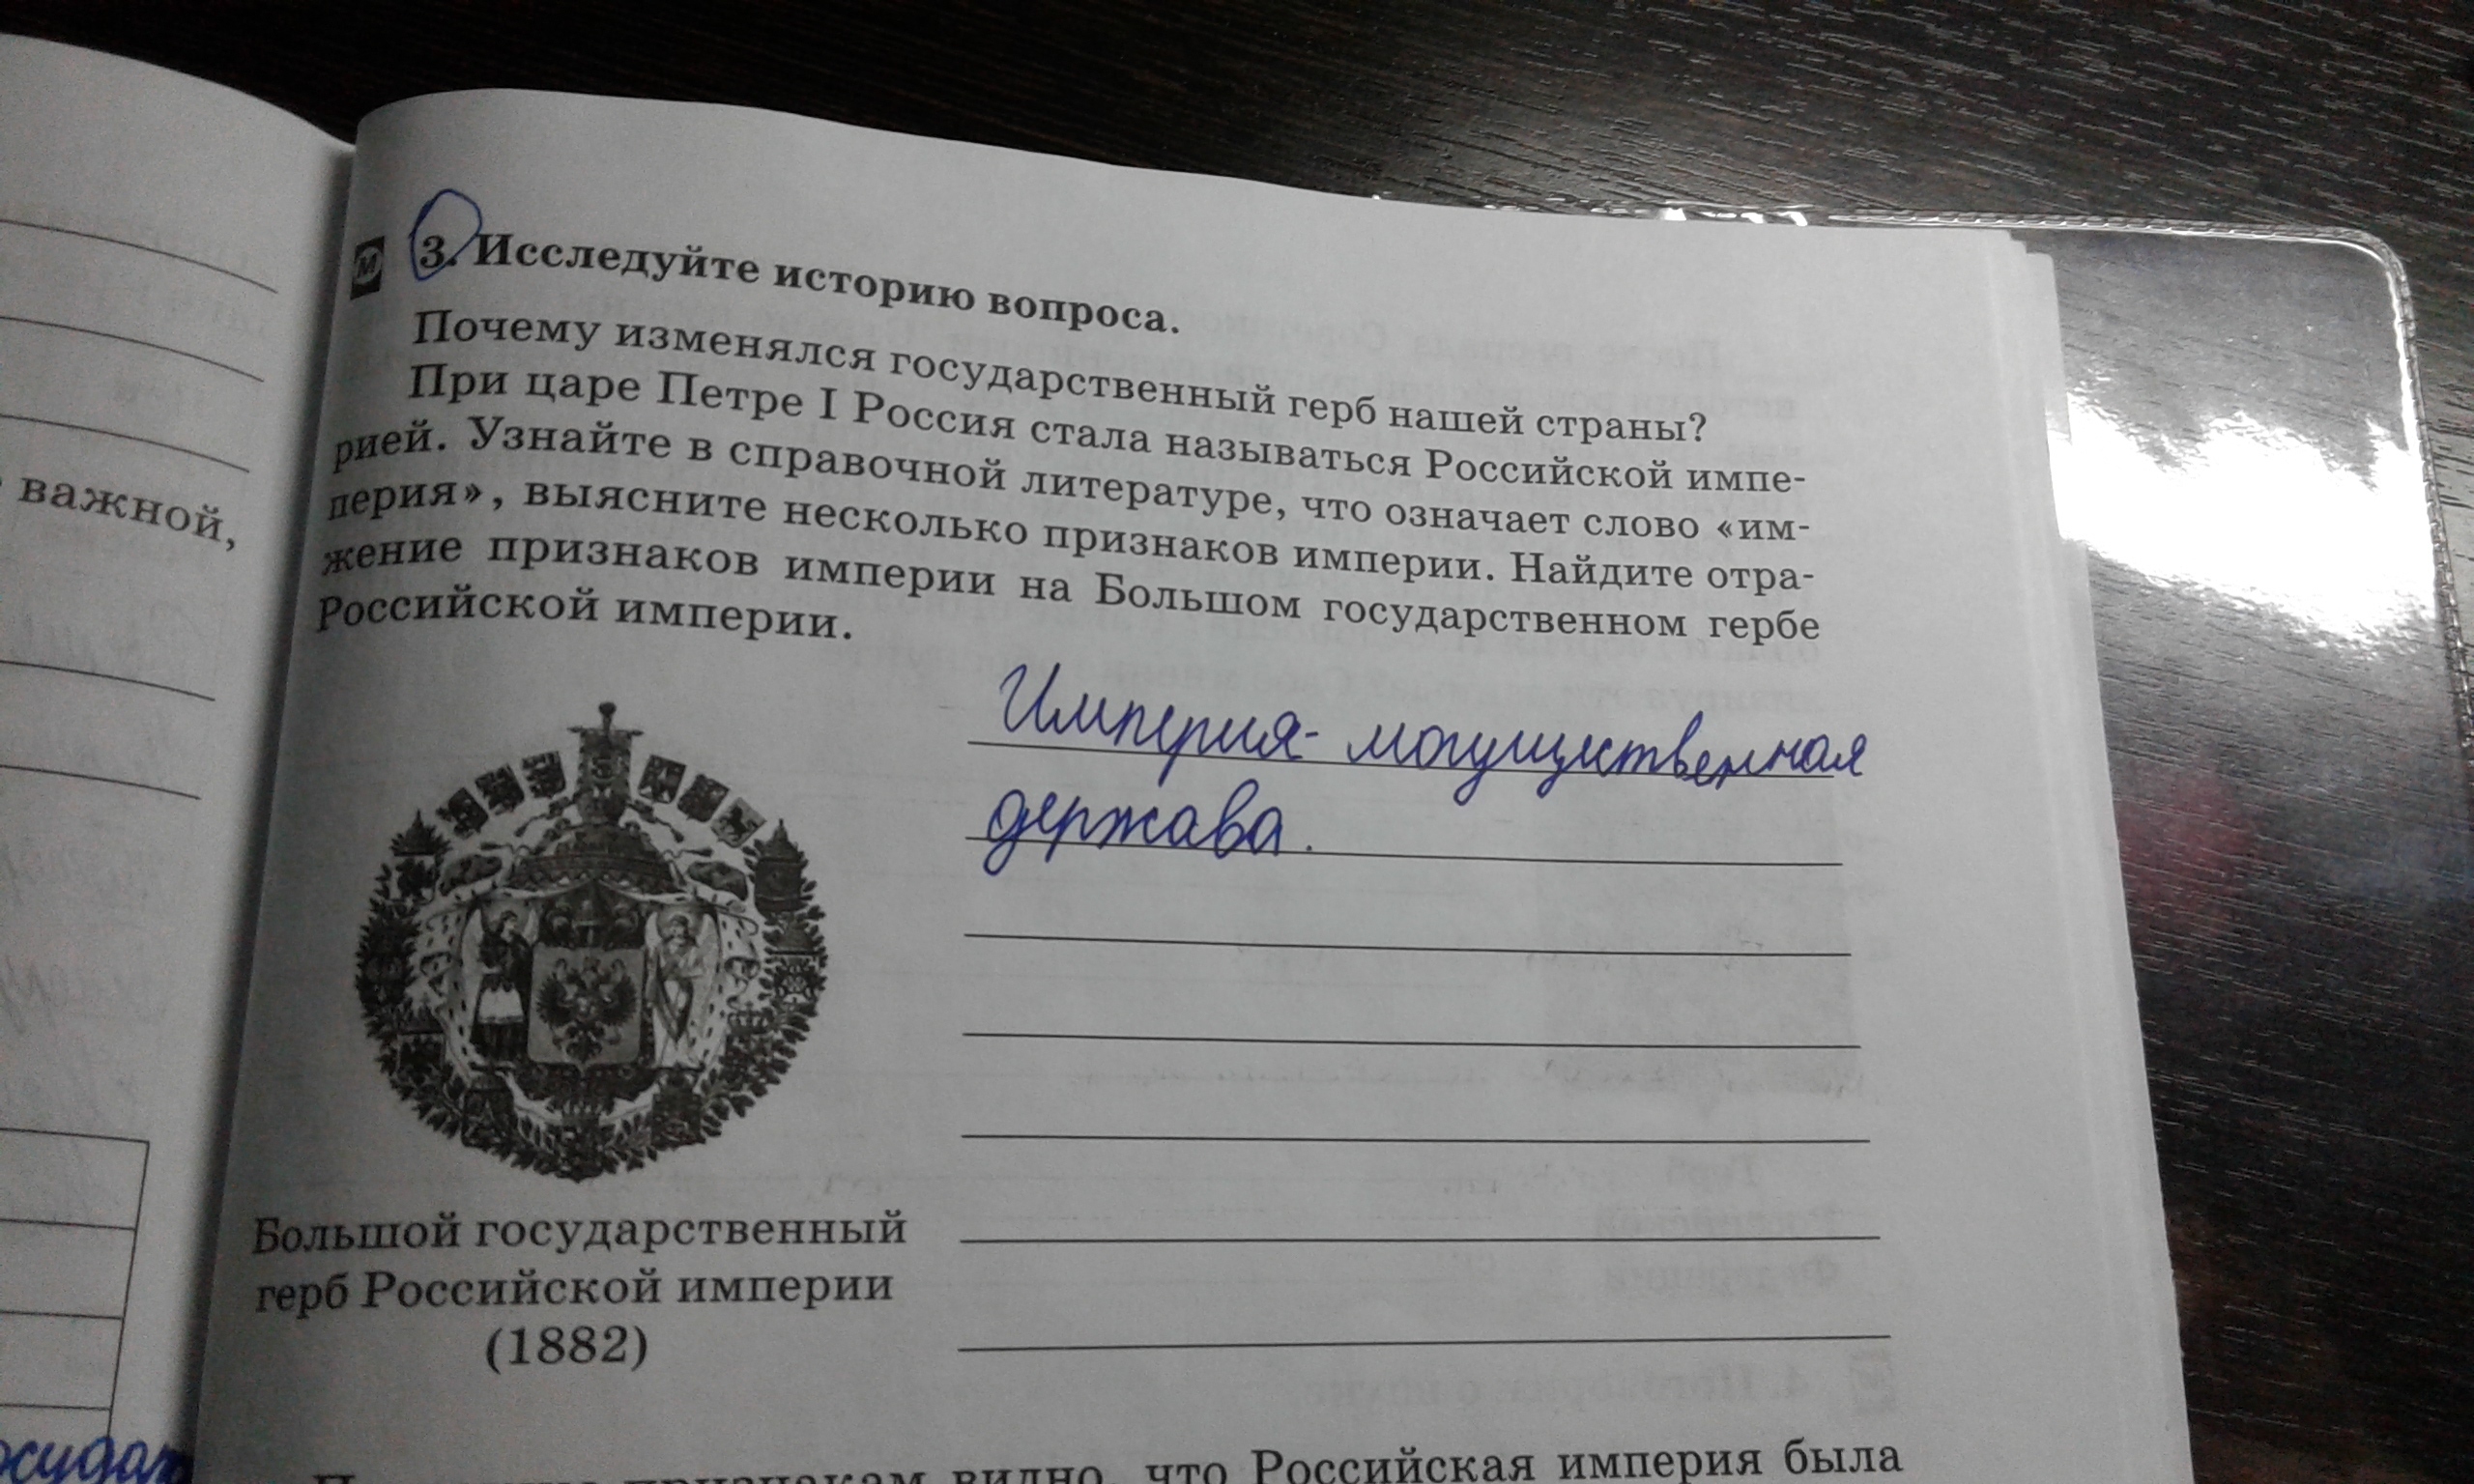 важной,
М
3. Исследуйте историю вопроса.
Почему изменялся государственный герб нашей страны?
При царе Петре I Россия стала называться Российской импе-
рией. Узнайте в справочной литературе, что означает слово «им-
перия», выясните несколько признаков империи. Найдите отра-
жение признаков империи на Большом государственном гербе
Российской империи.
Империя- могущественная
держава.
Большой государственный
герб Российской империи
(1882)
признакам видно, что Российская империя была